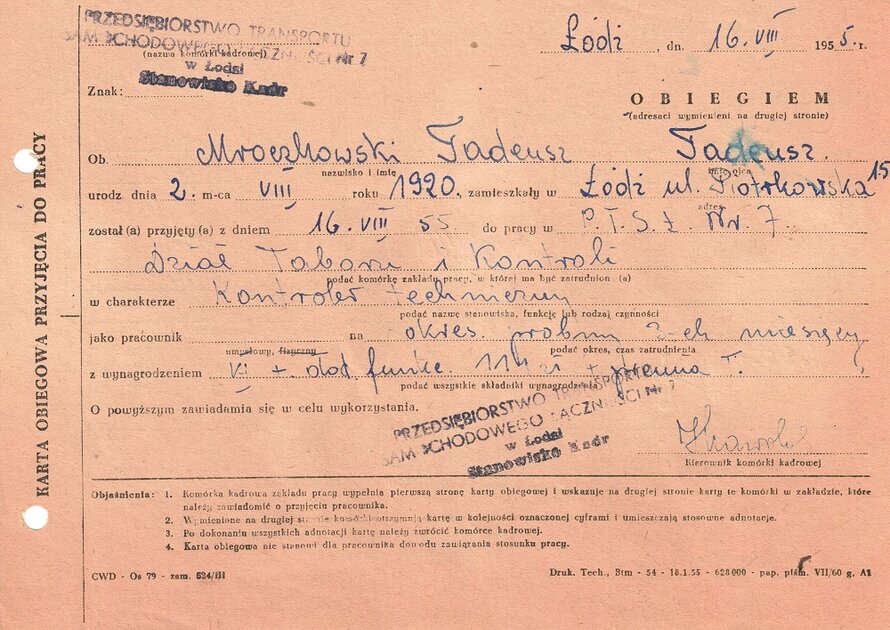 PRZEDSIĘBIORSTWO TRANSPORTU
SAMOCHODOWEGO ŁĄCZNOŚCI Nr 7
(nazwa komórki kadrowej)
w Łodzi
Stanowisko Kadr
Łódź, dn. 16. VIII 1955. r.
Znak:
OBIEGIEM
(adresaci wymienieni na drugiej stronie)
Ob. Mroczkowski Tadeusz Tadeusz.
nazwisko i imię imię ojca
urodz. dnia 2. m-ca VIII roku 1920, zamieszkały w Łódź ul. Piotrkowska 15
adres
został(a) przyjęty(a) z dniem 16. VIII 55. do pracy w P.T.S.Ł. Nr. 7
Dział Taboru i Kontroli
podać komórkę zakładu pracy, w której ma być zatrudnion (a)
w charakterze Kontroler techniczny
podać nazwę stanowiska, funkcję lub rodzaj czynności
jako pracownik na okres próbny 2-ch miesięcy
umysłowy, fizyczny podać okres, czas zatrudnienia
z wynagrodzeniem + dod. funkc. zł + premia T.
podać wszystkie składniki wynagrodzenia
O powyższym zawiadamia się w celu wykorzystania.
PRZEDSIĘBIORSTWO TRANSPORTU
SAMOCHODOWEGO ŁĄCZNOŚCI Nr 7
w Łodzi
Stanowisko Kadr
Kierownik komórki kadrowej
Objaśnienia: 1. Komórka kadrowa zakładu pracy wypełnia pierwszą stronę karty obiegowej i wskazuje na drugiej stronie karty te komórki w zakładzie, które
należy zawiadomić o przyjęciu pracownika.
2. Wymienione na drugiej stronie komórki otrzymują kartę w kolejności oznaczonej cyframi i umieszczają stosowne adnotacje.
3. Po dokonaniu wszystkich adnotacji kartę należy zwrócić komórce kadrowej.
4. Karta obiegowa nie stanowi dla pracownika dowodu zawiązania stosunku pracy.
CWD - Os 79 - zam. 524/III
Druk. Tech., Btm - 54 - 18.1.55 - 628000 - pap. piśm. VII/60 g. A1
KARTA OBIEGOWA PRZYJĘCIA DO PRACY